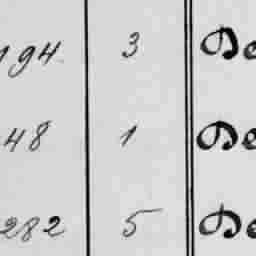 194. 3 De
48 1 De
282 5 De